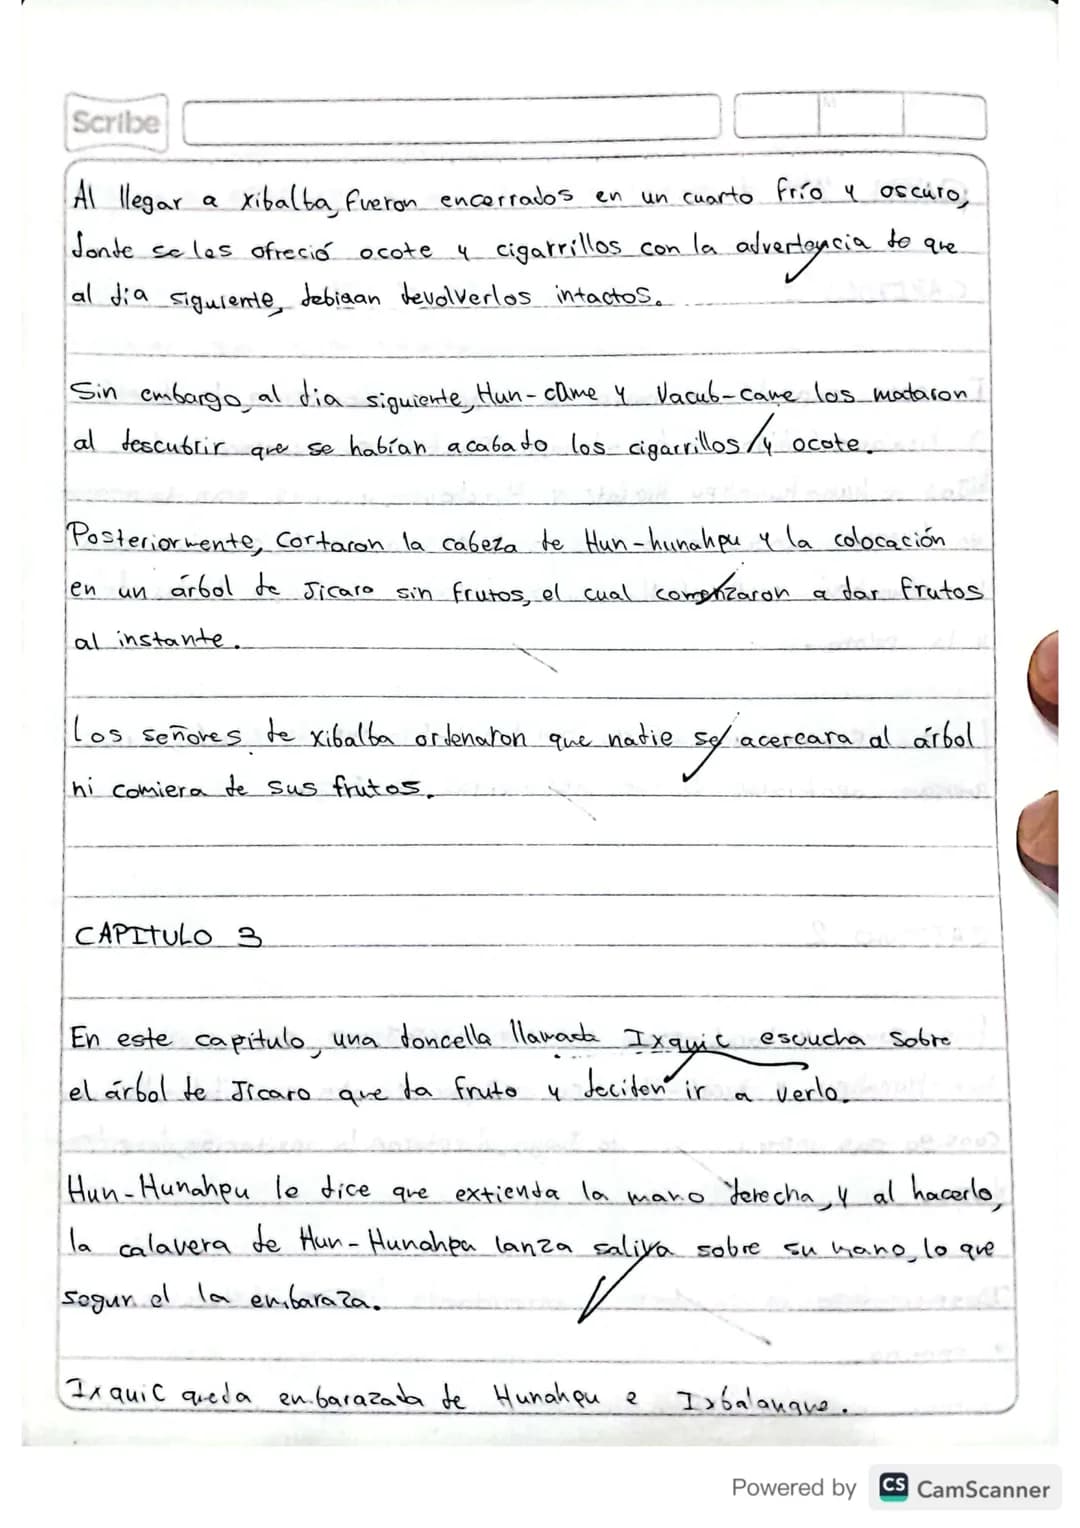 Scribe
Al llegar a xibalba, fueron encerrados en un cuarto frío y oscuro,
donde se les ofreció ocote y cigarrillos con la advertencia de que
al dia siguiente, debiaan devolverlos intactos.
Sin embargo, al dia siguiente, Hun-came y Vacub-came los mataron
al descubrir que se habían acabado los cigarrillos y ocote.
Posteriormente, cortaron la cabeza de Hun-hunahpu y la colocación
en un árbol de Jicaro sin frutos, el cual comenzaron a dar frutos
al instante.
Los señores de xibalba ordenaron que nadie se acercara al árbol
ni comiera de sus frutos.
CAPITULO 3
En este capitulo, una doncella llamada Ixquic escucha sobre
el árbol de Jícaro que da fruto y deciden ir a verlo.
Hun-Hunahpu le dice que extienda la mano derecha, y al hacerlo,
la calavera de Hun-Hunahpu lanza saliva sobre su mano, lo que
segun el la embaraza.
Ixquic queda embarazada de Hunahpu e Ixbalanque.
Powered by CS CamScanner